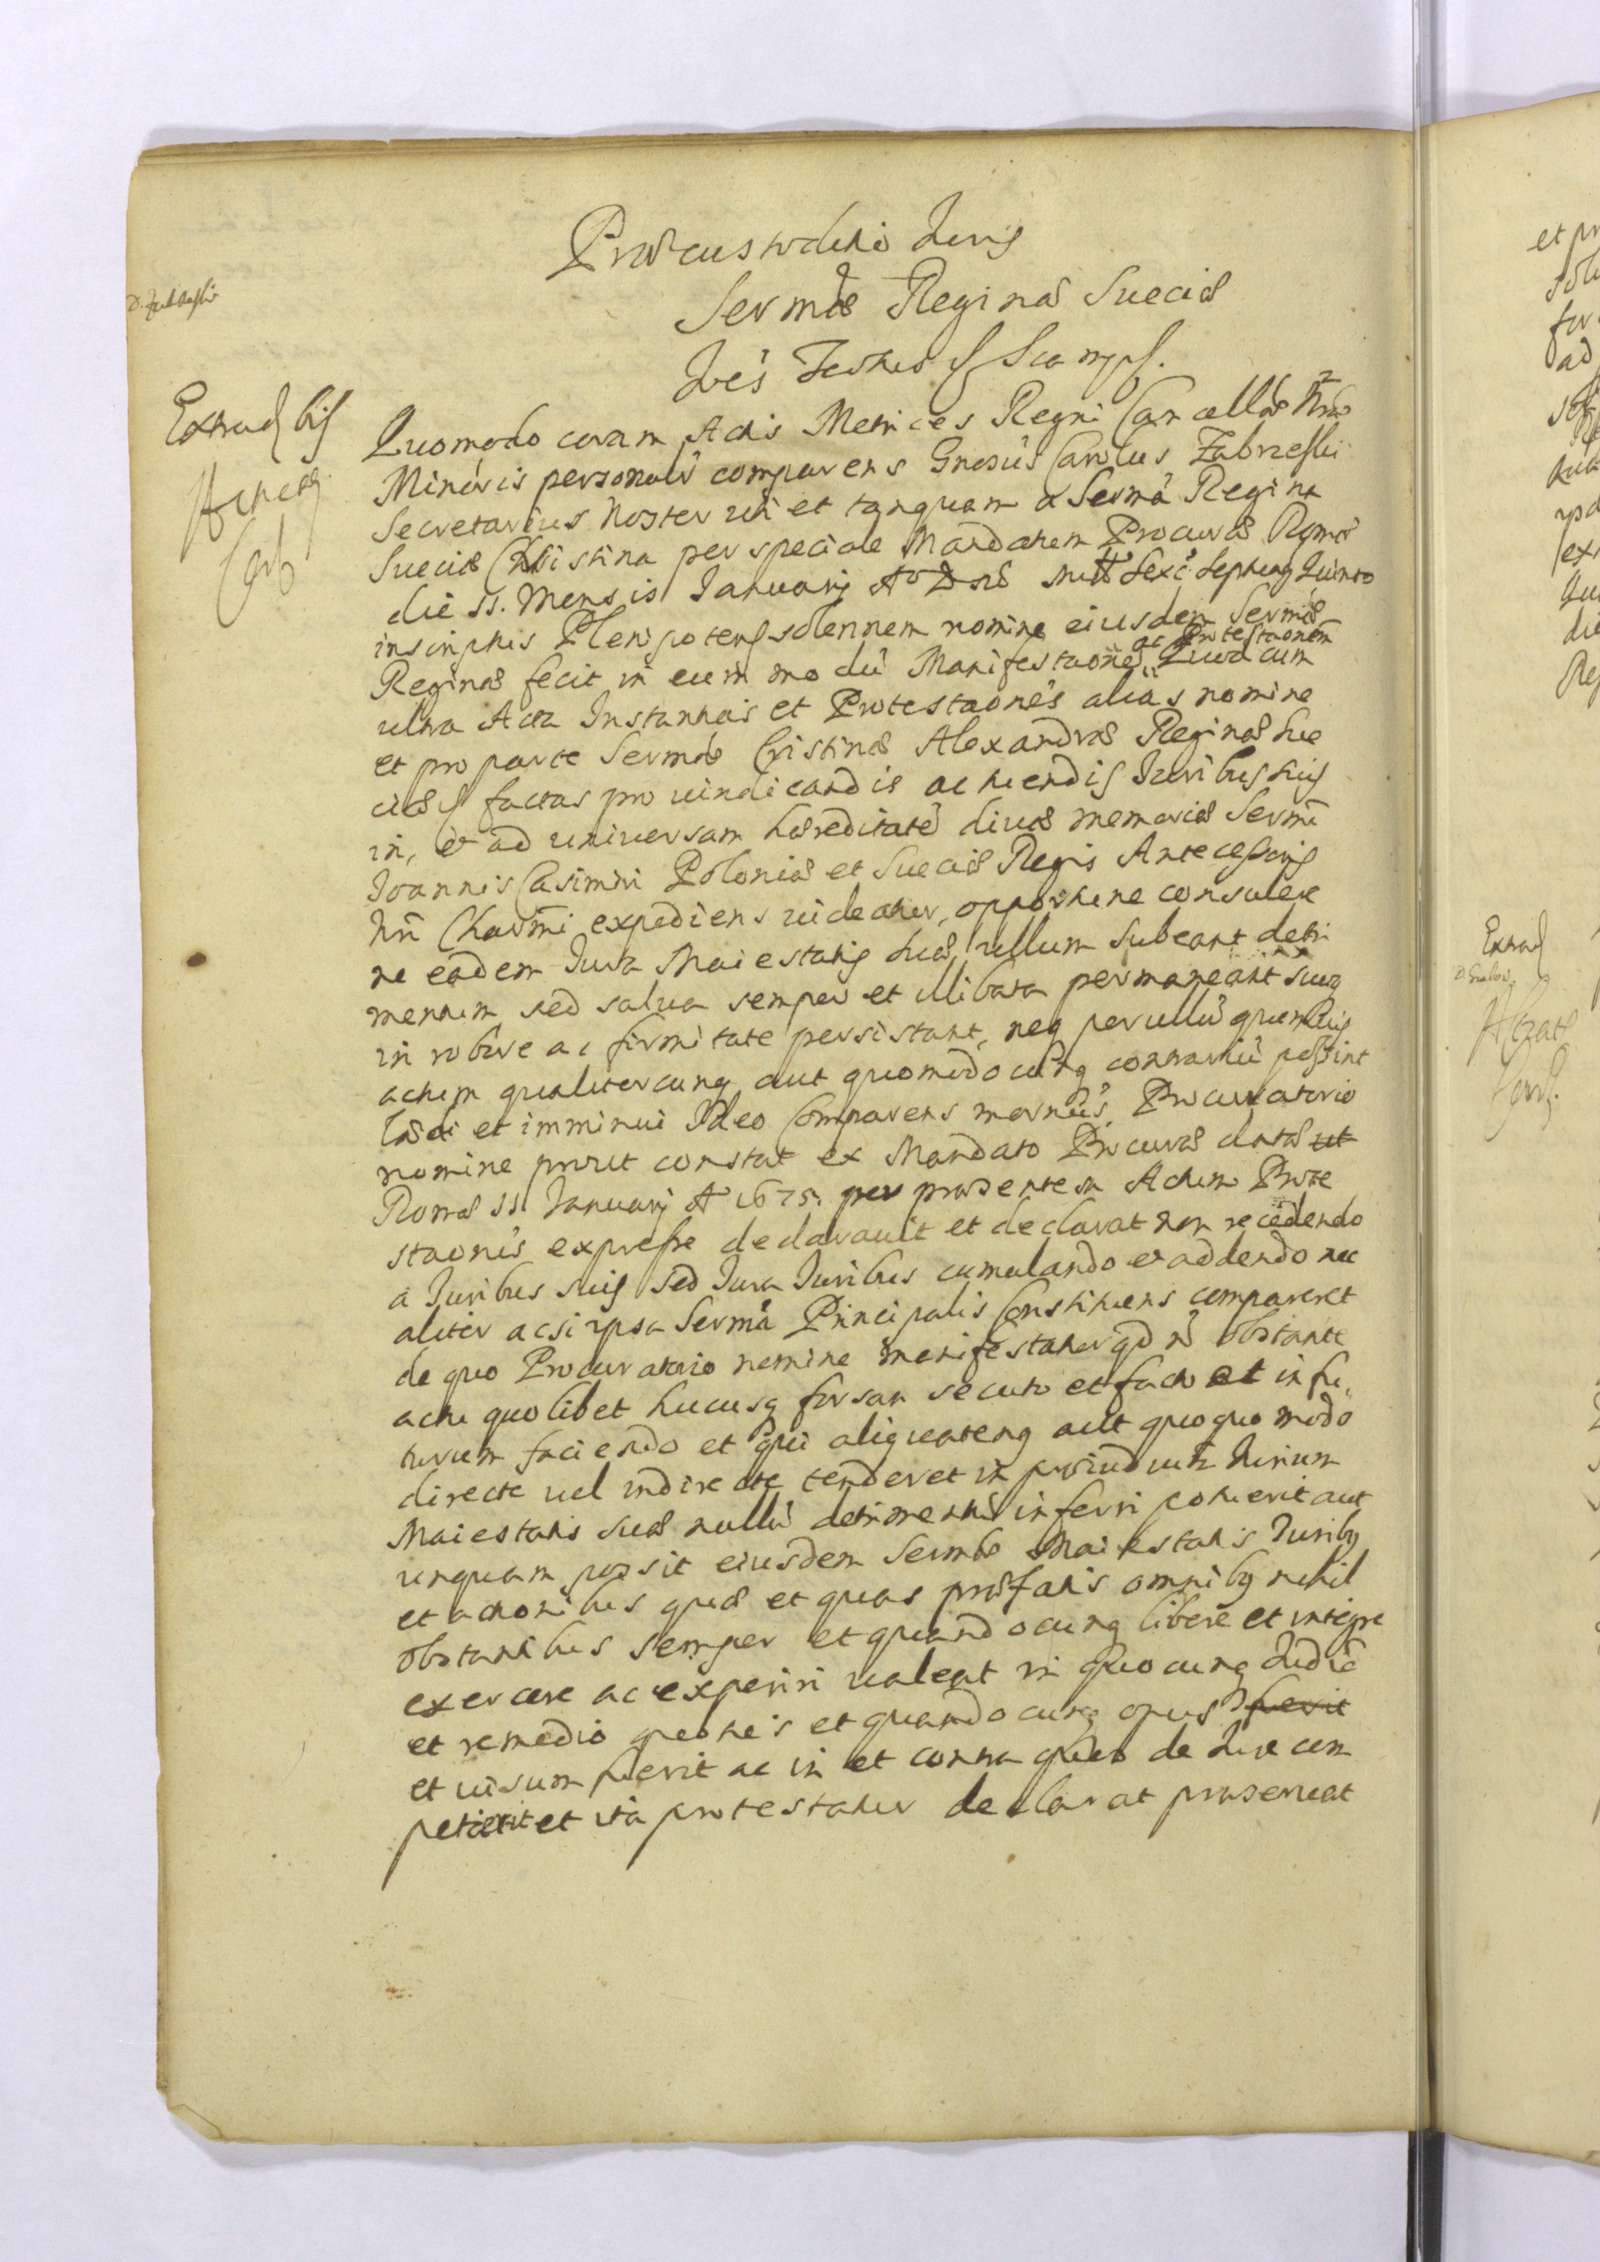 Præcustoditio Juris
Sermæ Reginæ Sueciæ
D. Zabrieski
Ioes Tertius etc. Significamus
Extrad bis
Quomodo coram Actis Metrices Regni Cancellæ Nræ
Minoris personalr comparens Gnosus Carolus Zabrieski
Secretarius Noster uti et tanquam a Serma Regina
Sueciæ Christina per speciale Mandatum Procuræ Romæ
die 11. Mensis Januarij Ao Dni Mill Sexc. Septuag Quinto
inscriptus Plenipotens solennem nomine eiusdem Sermæ
Reginæ fecit in eum modū Manifestaone ac Protestaonem Quod cum
ultra Acta Instantias et Protestaones alias nomine
et pro parte Sermæ Cristinæ Alexandræ Reginæ Sue
ciæ etc factas pro vindicandis ac tuendis Iuribus suis
in, et ad universam hæreditatē divæ memoriæ Sermi
Joannis Casimiri Poloniæ et Sueciæ Regis Antecessoris
Nri Charmi expediens videatur, opportune consulere
ne eadem Jura Maiestatis suæ ullum subeant detri
mentum sed salva semper et illibata permaneant suoq
in robore ac firmitate persistant, neq per ullū quempiis
actum qualitercunq aut quomodocunq contrariū possint
lædi et imminui Ideo Comparens mornus Procuratorio
nomine prout constat ex Mandato Procuræ datæ ut
Romæ 11 Januarij Ao 1675. per præsentem Actum Prote
staonis expresse declaravit et declarat non recedendo
a Juribus suis sed Jura Juribus cumulando et addendo nec
aliter ac si ipsa Serma Principalis Constituens compareret
de quo Procuratorio nomine manifestatur qd nō obstante
actu quolibet hucusq forsan secuto et facto et in fu
turum faciendo et qui aliquatenq aut quoquo modo
directe vel indirecte tenderet in præiudium Jurium
Maiestatis suæ nullū detrimentū inferri potuerit aut
unquam possit eiusdem Sermæ Maiestatis Iuribq
et actionibus quæ et quas præfatis omnibq nihil
obstantibus semper et quandocunq libere et integre
exercere ac experiri valeat in quocunq Judic
et remedio quoties et quandocunq opus fuerit
et visum fuerit ac in et contra quos de Jure com
petierit et ita protestatur declarat præservat
et pr
ad
Extrad